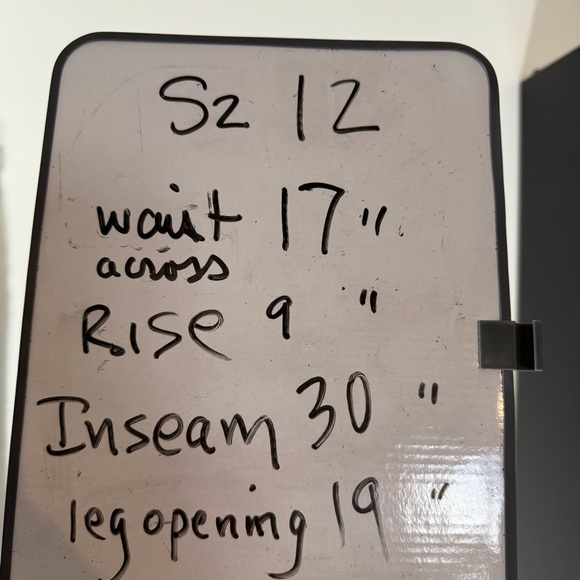 Sz 12
waist 17"
across
Rise 9 "
Inseam 30 "
leg opening 19 "